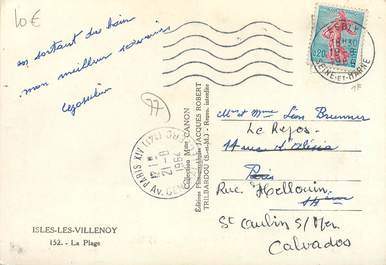 10€
en sortant du bain
mon meilleur souvenir
77
PARIS XIV
21-8
1964
0,20
SEINE-ET-MARNE
1F
Collection Mme CANON
Editions Photographiques JACQUES ROBERT
TRILBARDOU (S.-et-M.) - Repro. interdite
Mr et Mme Léon Brunner
Le Repos
14 rue d'Alésia
Paris
Rue Hellouin
14ème
St Aubin S/Mer
Calvados
ISLES-LES-VILLENOY
152. - La Plage